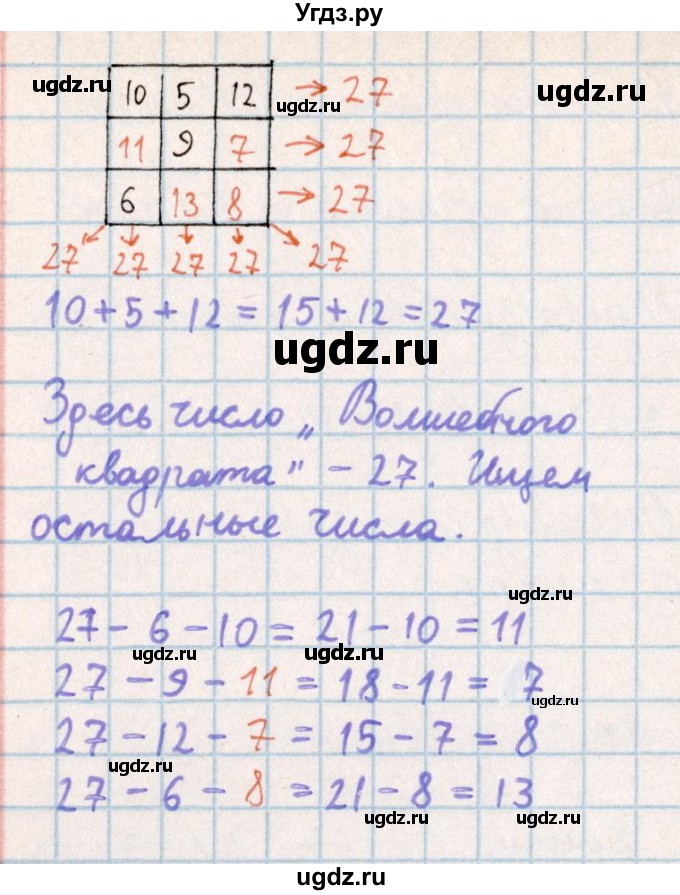 Угдз.ру
ugdz.ru
10 5 12 → 27
ugdz.ru
ugdz.ru
11 9 7 → 27
6 13 8 → 27
27 27 27 27 27
10+5+12=15+12=27
ugdz.ru
Здесь число „Волшебного
квадрата" – 27. Ищем
остальные числа.
ugdz.ru
27-6-10=21-10=11
ugdz.ru
ugdz.ru
27-9-11=18-11=7
ugdz.ru
27-12-7=15-7=8
ugdz.ru
27-6-8=21-8=13
ugdz.ru
ugdz.ru
ugdz.ru